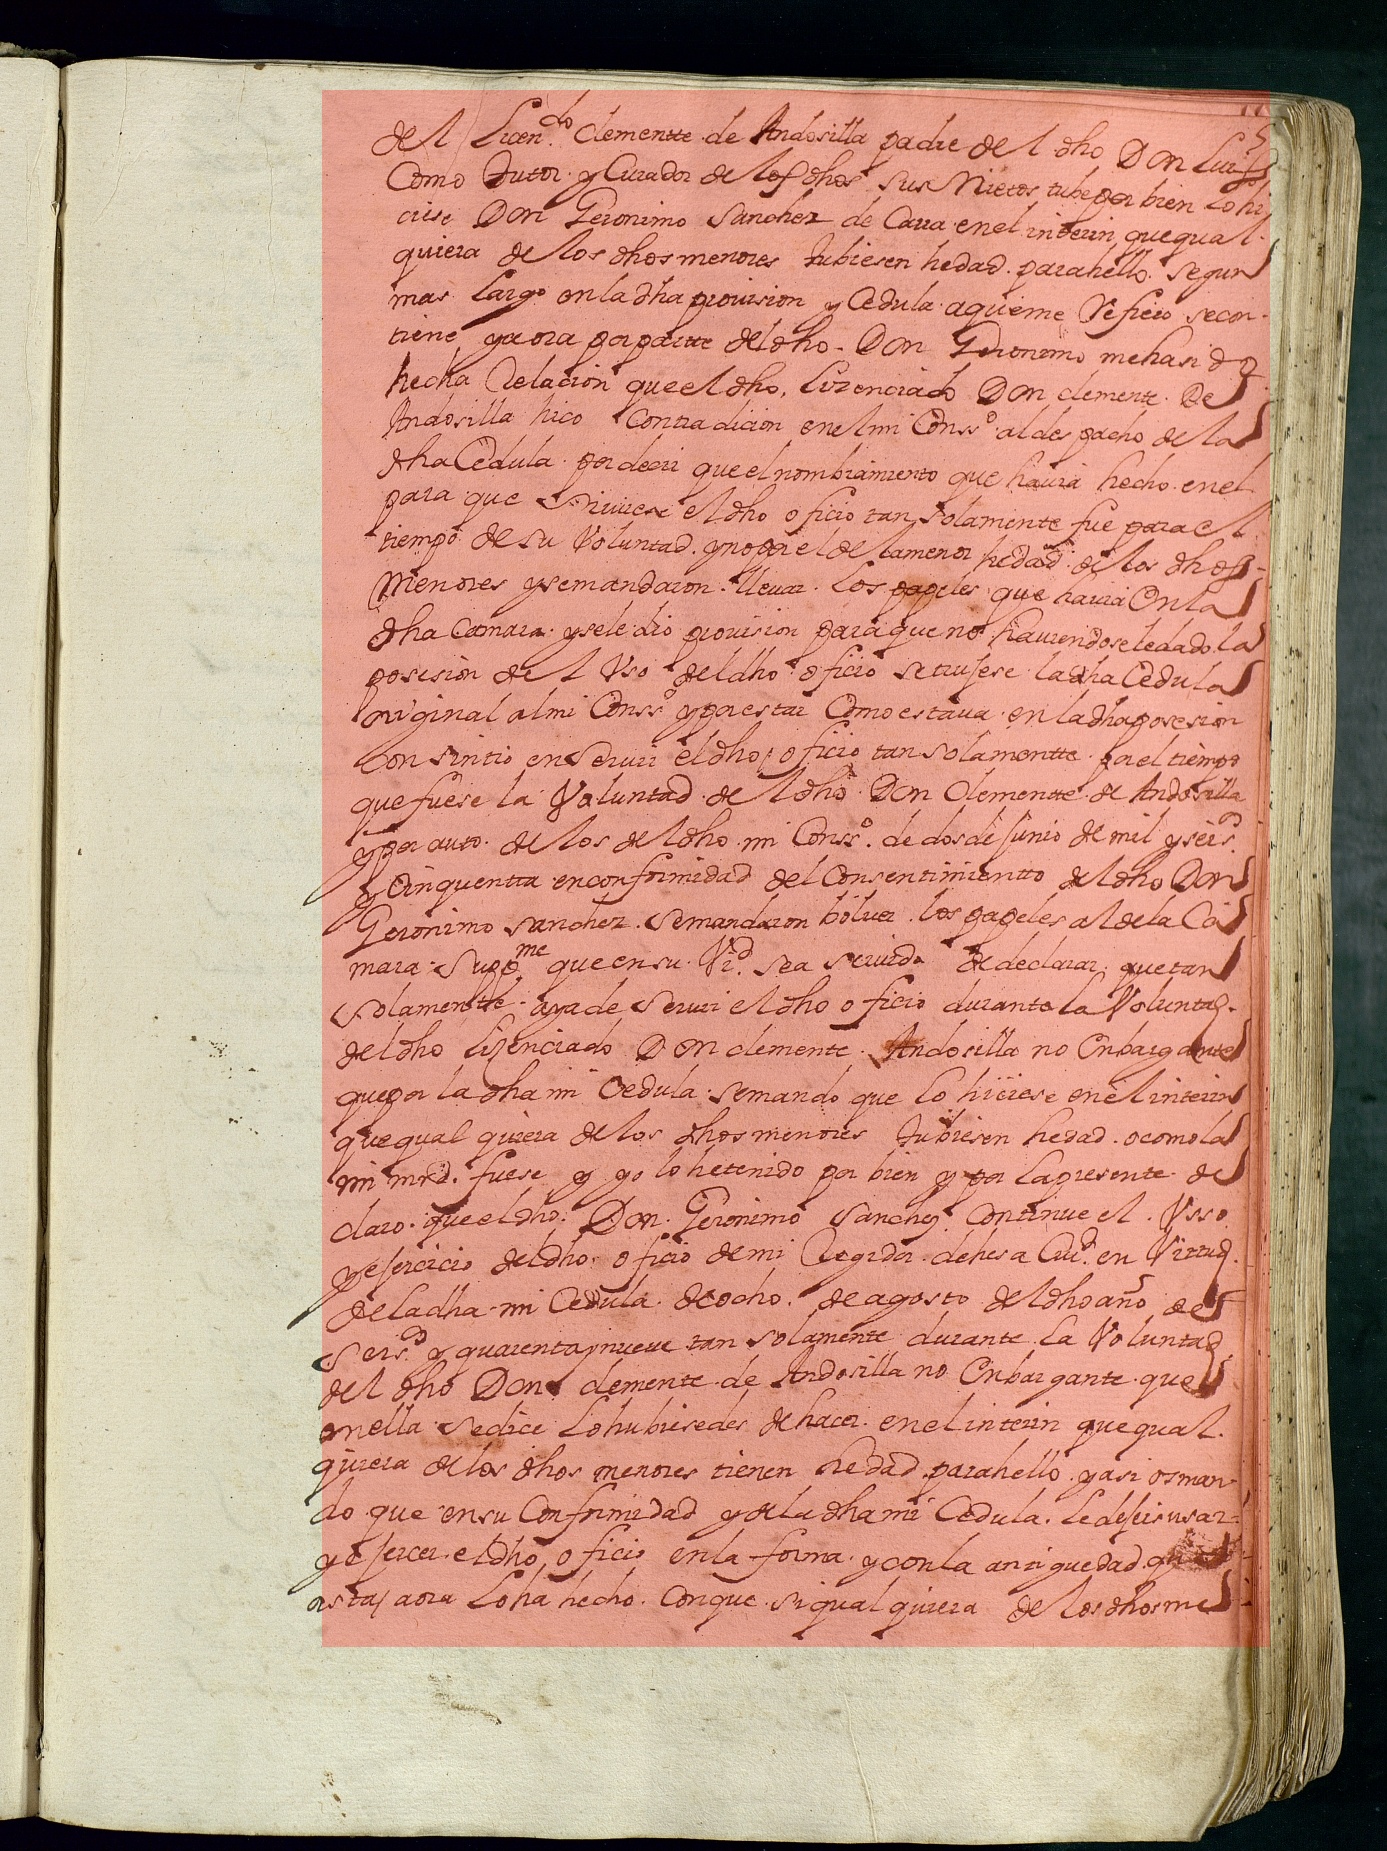 del Licen.do Clementte de Andosilla padre del dho Don Luis
Como tutor y Curador de los dhos sus Nietos tube por bien lo hi
ciese Don Geronimo Sanchez de Cara en el interin que qual
quiera de los dhos menores tubiesen hedad para hello segun
mas largo en la dha provision y Cedula aqueme Refiero secon
tiene y aora por partte del dho Don Geronimo mehasido
hecha Relacion que el dho Lizenciado Don Clemente De
Andosilla hico Contradicion en el mi Conss.o al despacho de la
dha Cedula por decir que el nombramiento que havia hecho en el
para que sirviese el dho oficio tan solamente fue para el
tiempo de su Voluntad y no por el de la menor hedad de los dhos
Menores y se mandaron llevar los papeles que havia En la
dha Camara y sele dio provision para que no haviendosele dado la
posesion del Vso del dho oficio se trujese la dha Cedula
original al mi Conss.o y por estar Como estava en la dha posesion
Consintio en Servir el dho oficio tan solamentte por el tiempo
que fuese la Voluntad del dho Don Clementte de Andosilla
y por auto de los del dho mi Conss.o de dos de Junio de mil y seis.os
y Cinquentta en conformidad del Consentimientto del dho Don
Geronimo Sanchez se mandaron bolver los papeles al de la Ca
mara Supp.me que en su Vi.d sea servido de declarar que tan
solamentte aya de Servir el dho oficio durante la Voluntad
del dho Lizenciado Don Clemente Andosilla no Enbargante
que por la dha mi Cedula se mando que lo hiciese en el interin
que qual quiera de los dhos menores tubiesen hedad o como la
mi mrd. fuese y yo lo he tenido por bien y por la presente de
claro que el dho Don Geronimo Sanchez Continue el Vsso
y ejercicio del dho oficio de mi Regidor de hesa Ciu.d en Virtud
de la dha mi Cedula de ocho de agosto del dho año de
Seis.os y quarenta y nueve tan solamente durante la Voluntad
del dho Don Clemente de Andosilla no Enbargante que
en ella se dice Lo hubiesedes de hacer en el interin que qual
quiera de los dhos menores tienen hedad para hello y asi os man
do que en su Conformidad y de la dha mi Cedula le dejeis usar
y ejercer el dho oficio en la forma y con la antiguedad que
asta aora Lo ha hecho Con que si qual quiera de los dhos me